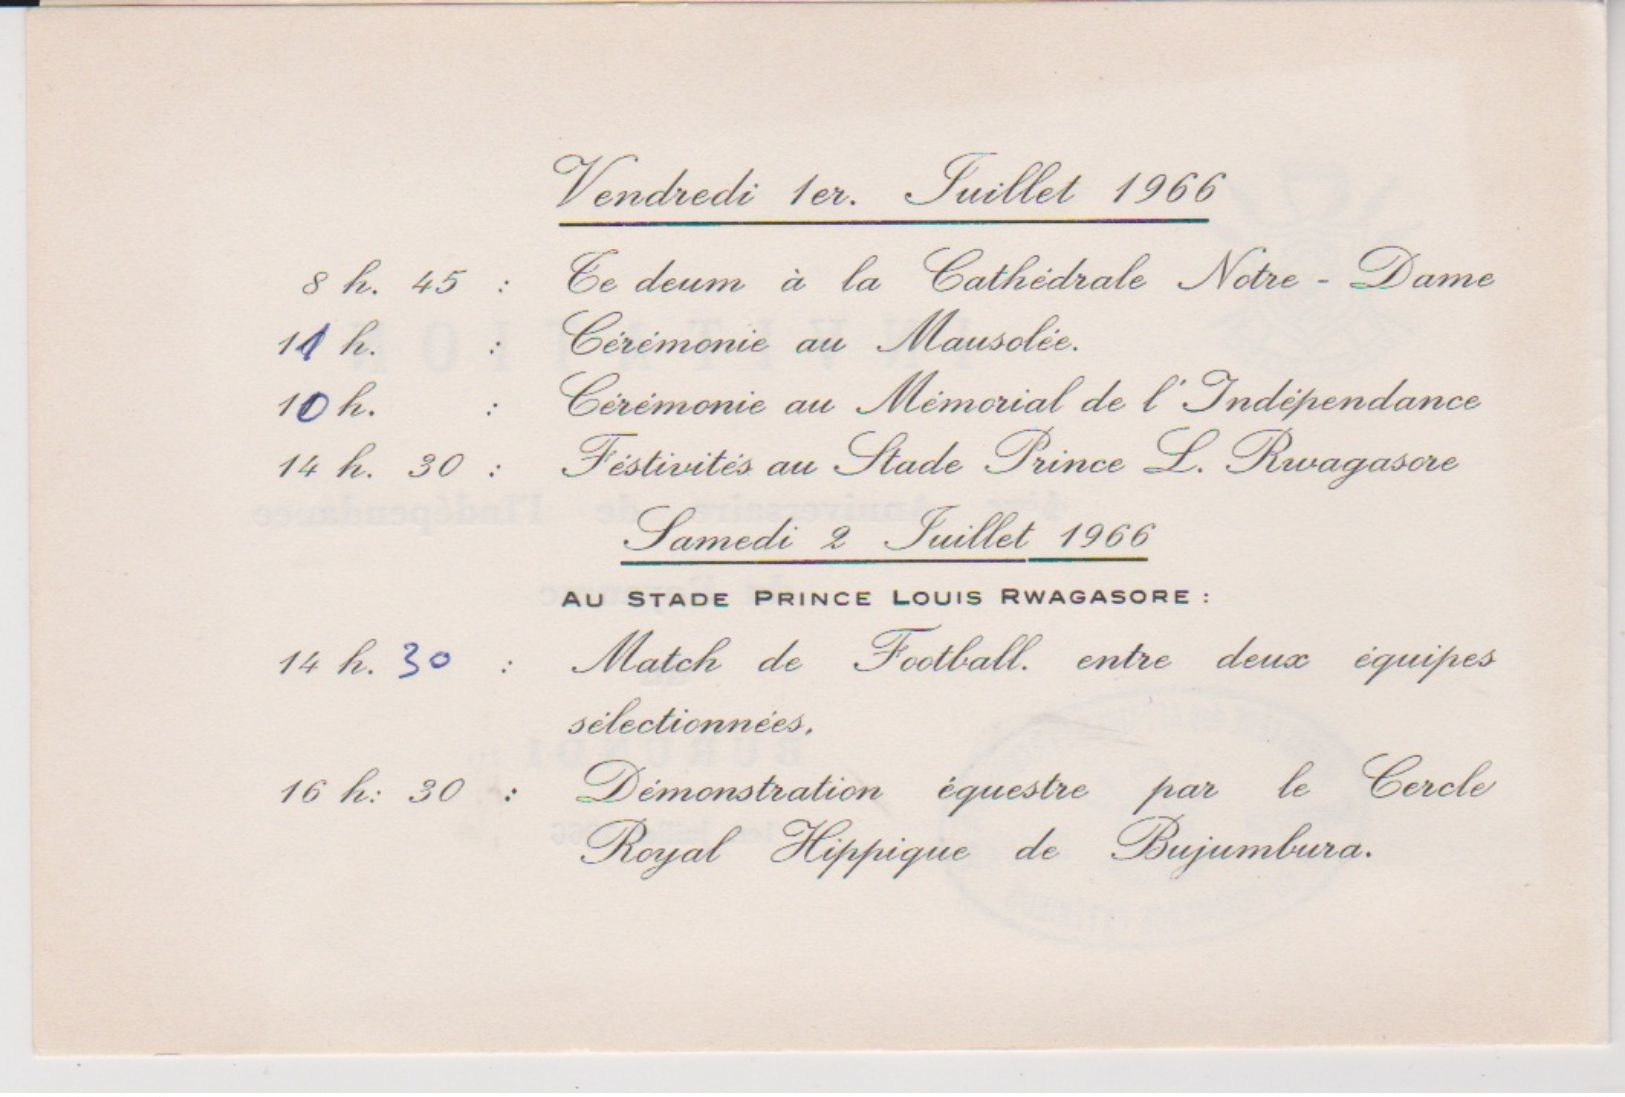 Vendredi 1er. Juillet 1966
8 h. 45 : Te deum à la Cathédrale Notre - Dame
11 h. : Cérémonie au Mausolée.
10 h. : Cérémonie au Mémorial de l'Indépendance
14 h. 30 : Féstivités au Stade Prince L. Rwagasore
Samedi 2 Juillet 1966
AU STADE PRINCE LOUIS RWAGASORE :
14 h. 30 : Match de Football. entre deux équipes
sélectionnées.
16 h: 30 : Démonstration équestre par le Cercle
Royal Hippique de Bujumbura.